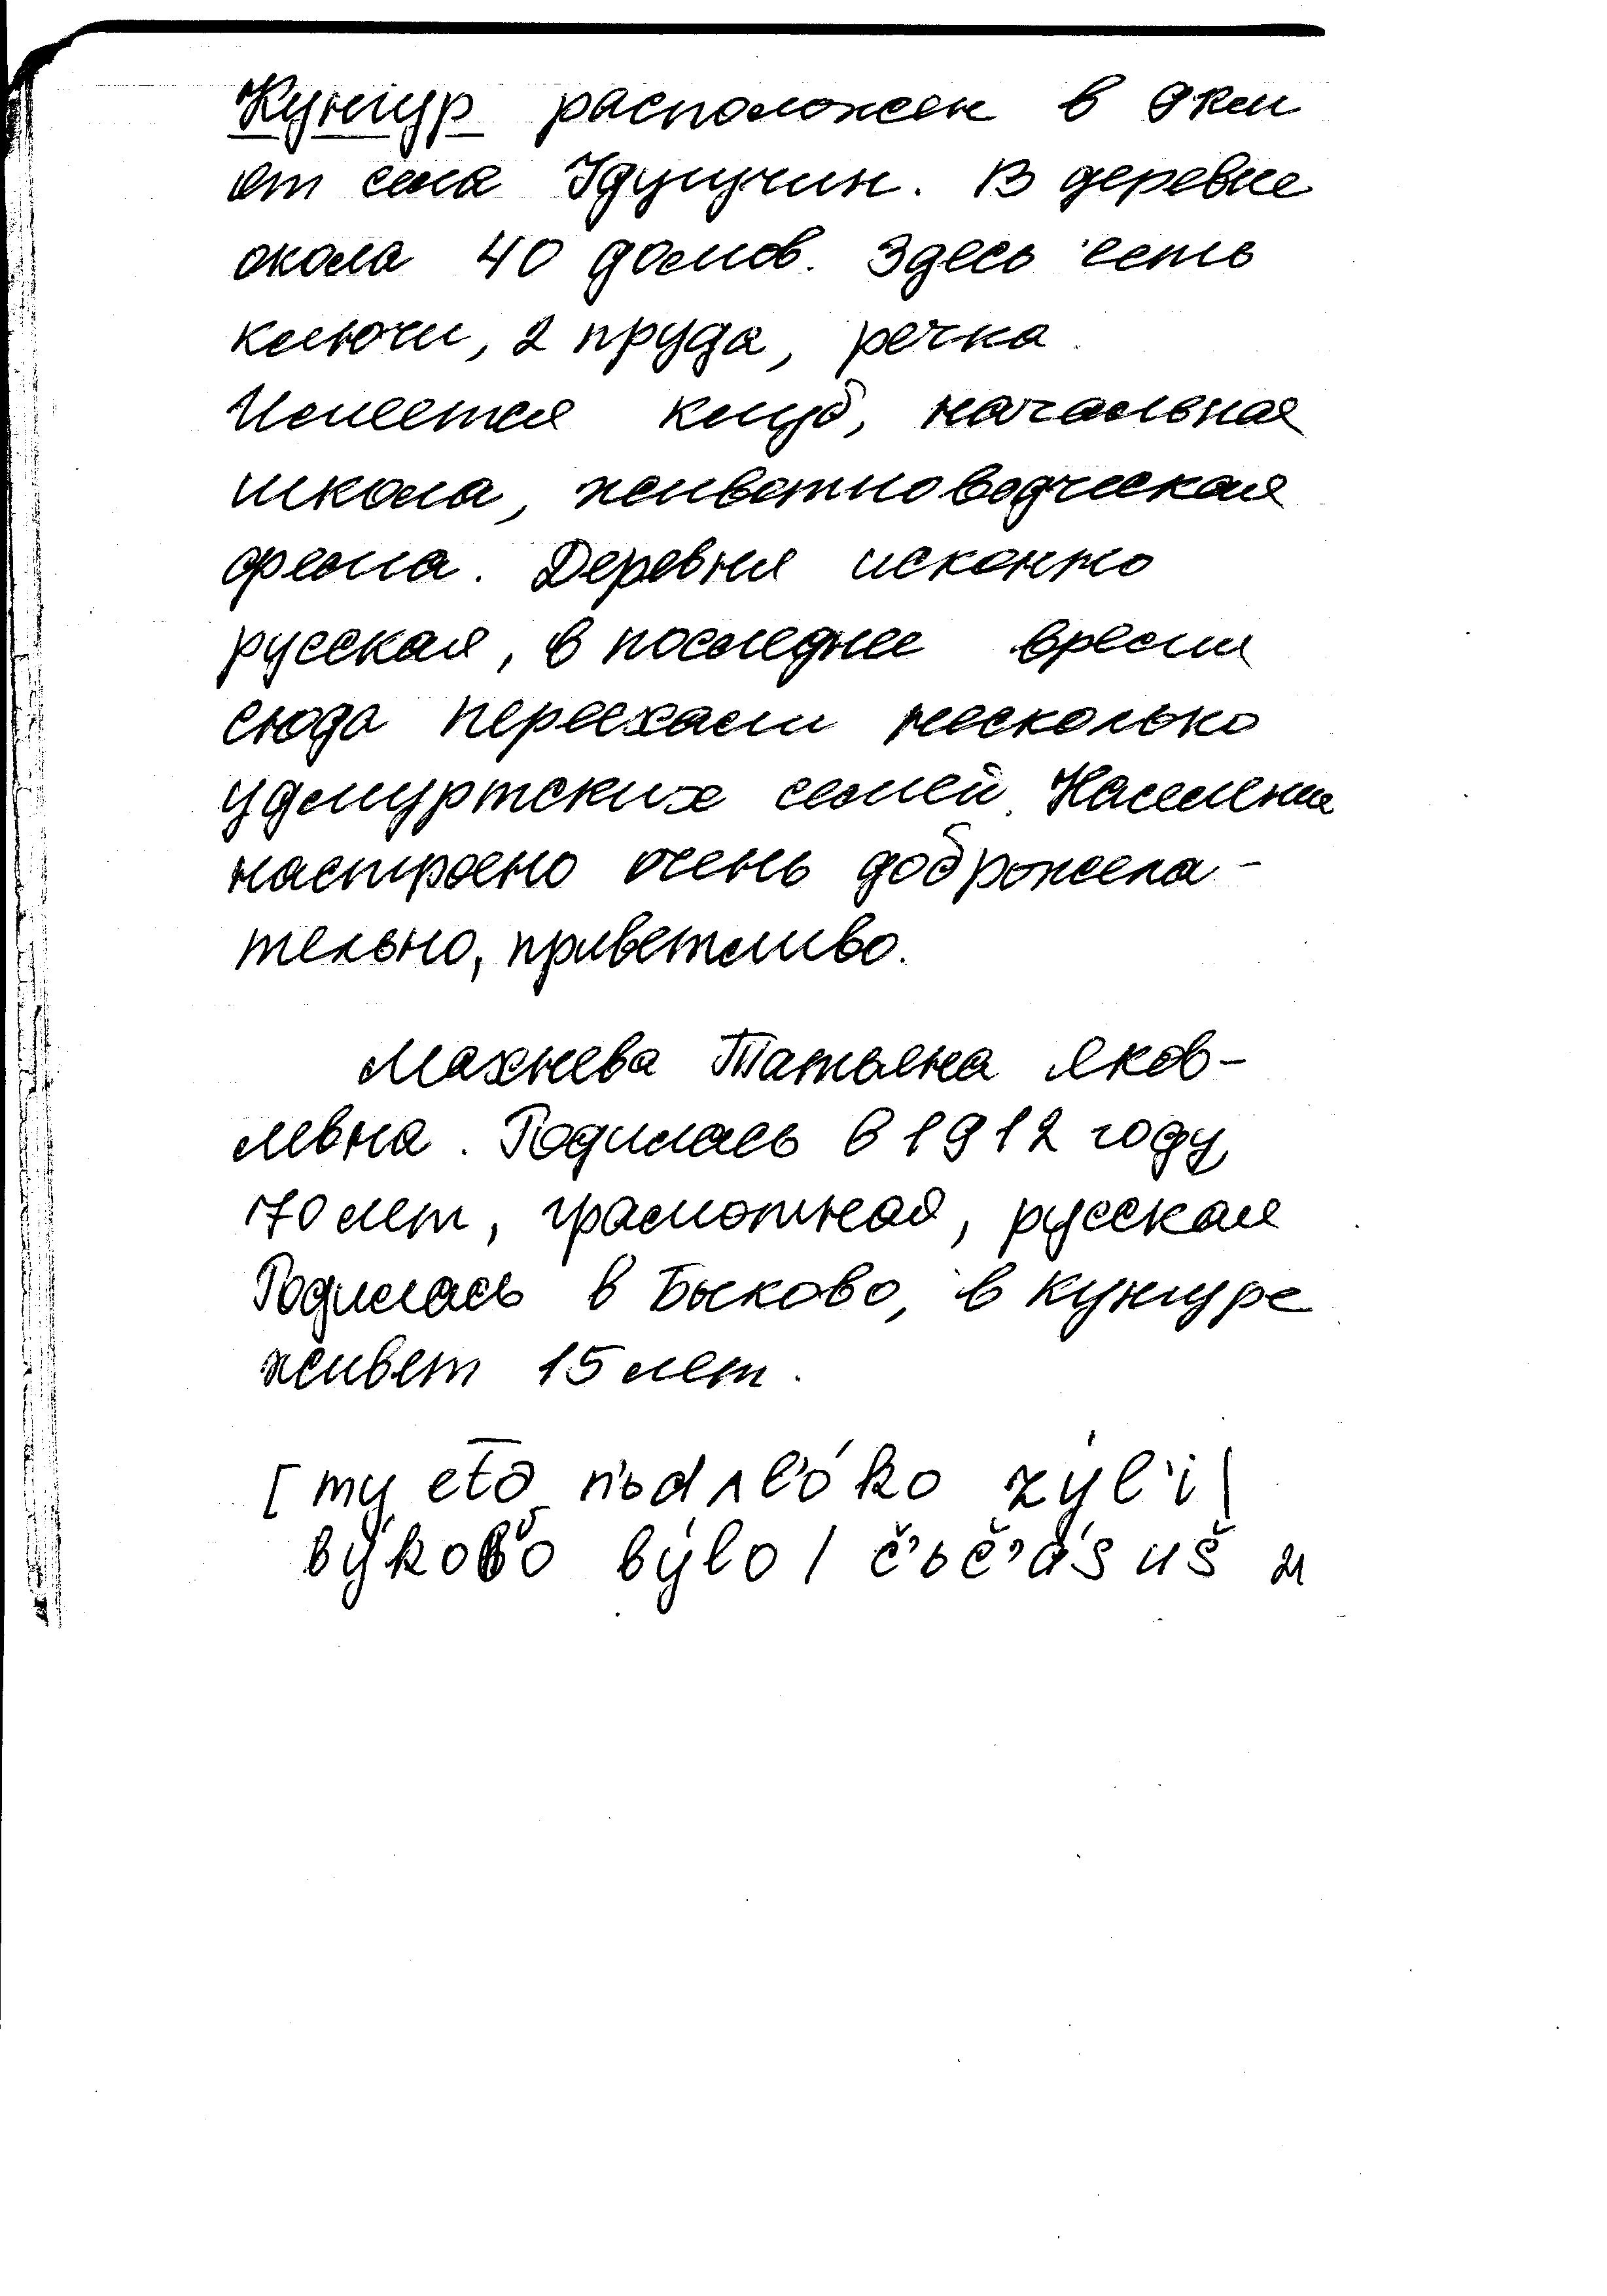 Кунгур расположен в 9км
от села Удугучин. В деревне
около 40 домов. Здесь есть
ключи, 2 пруда, речка.
Имеется клуб, начальная
школа, животноводческая
ферма. Деревня исконно
русская, в последнее время
сюда переехали несколько
удмуртских семей. Население
настроено очень доброжела-
тельно, приветливо.
Махнева Татьяна Яков-
левна. Родилась в 1912 году
70 лет, грамотная, русская
Родилась в Быково, в Кунгуре
живет 15 лет.
[my
výlo / č’ъč’ás uš